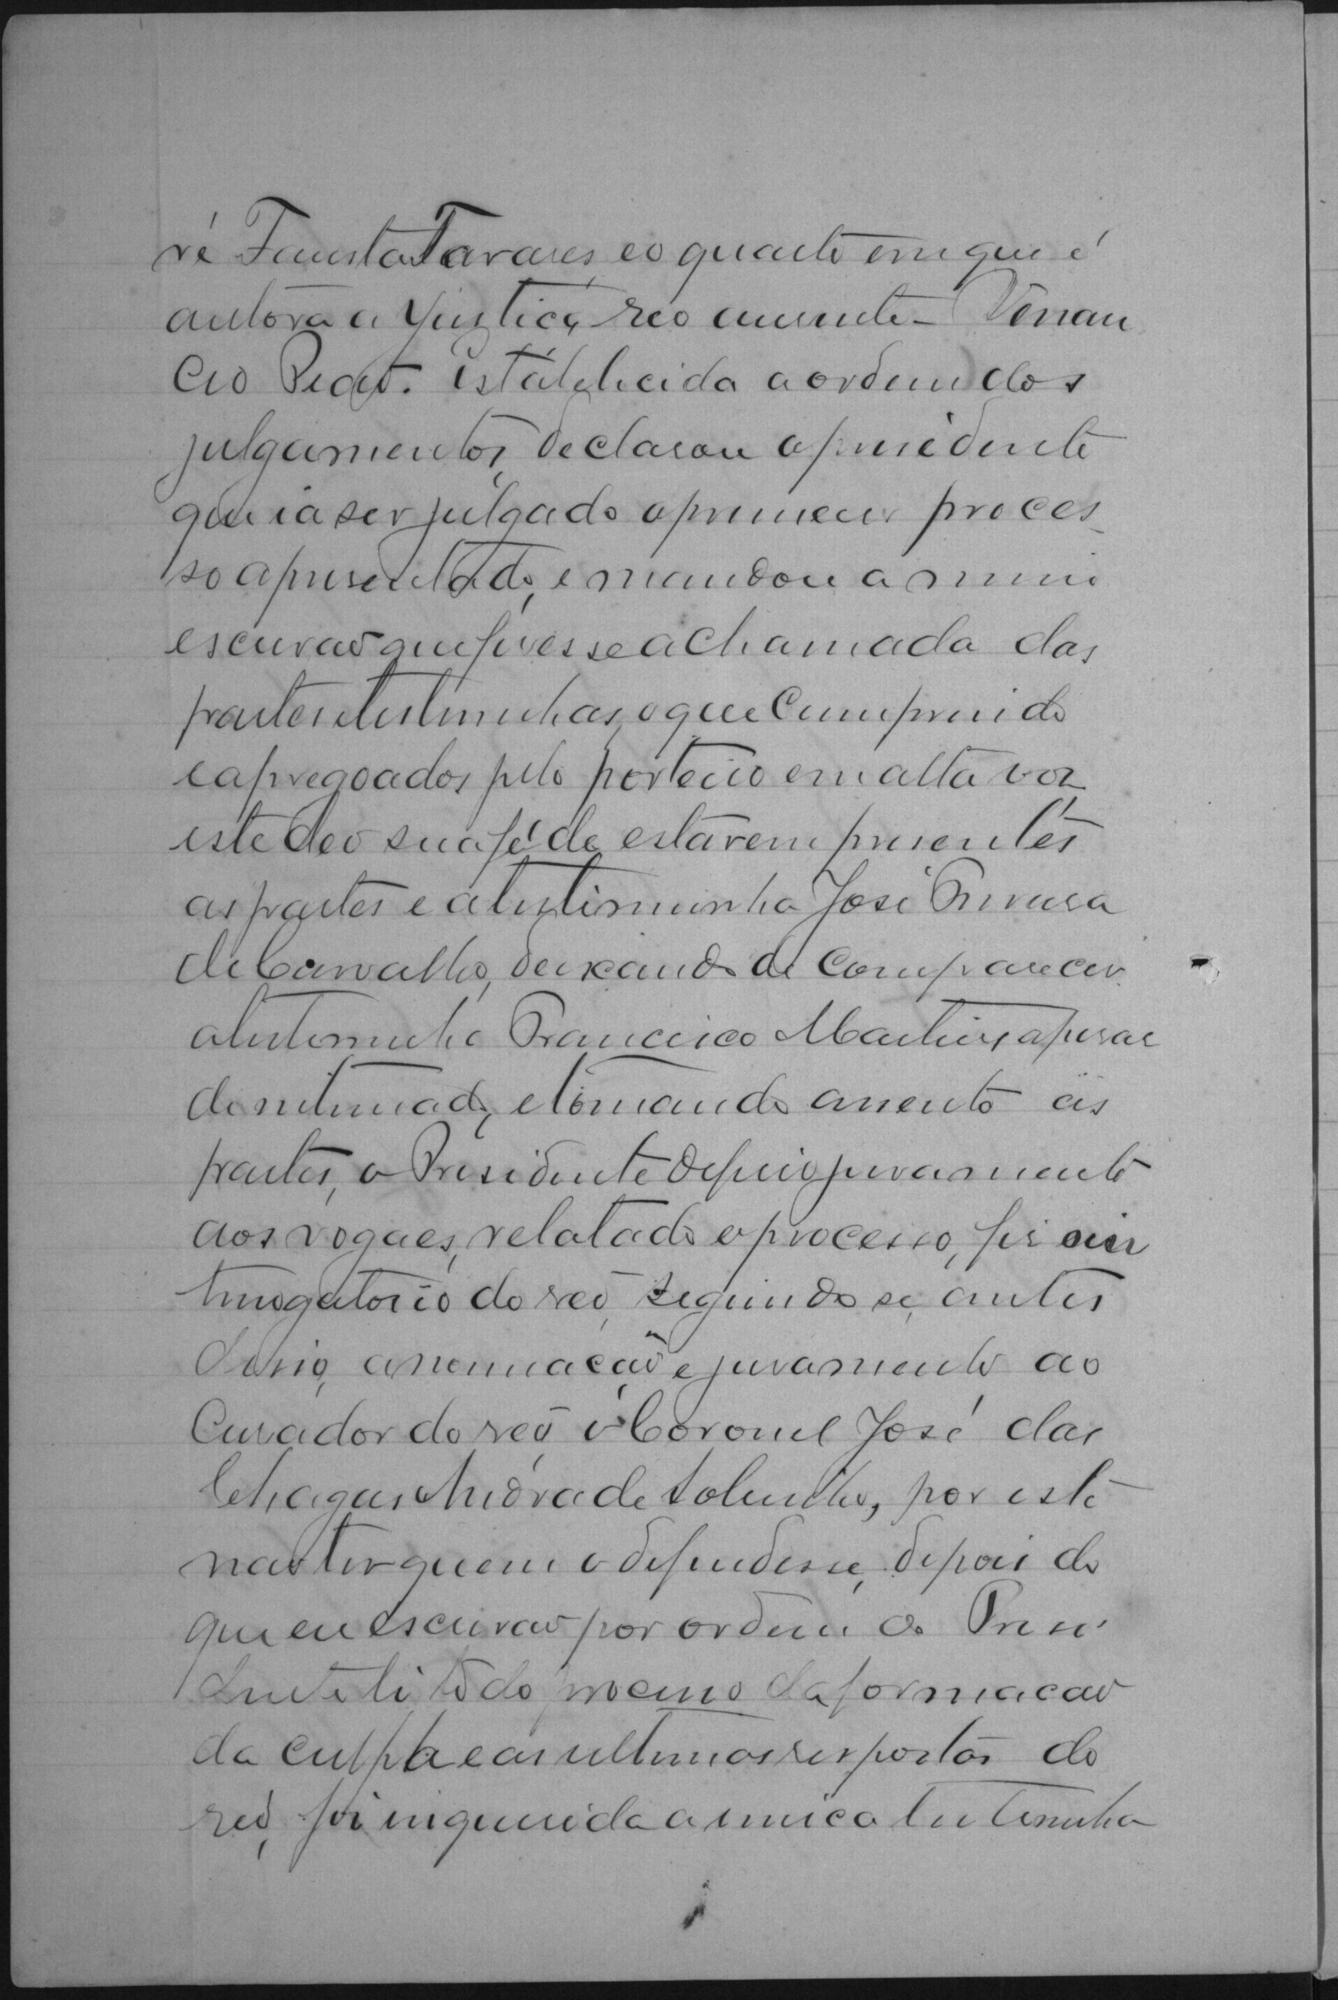 ré Fausta Tavares, e o quarto em que é
autora a Justiça, réo ausente - Venan
cio Pedro. Estabelecida a ordem dos
julgamentos, declarou o presidente
que ia ser julgado o primeiro proces-
so apresentado, e mandou a mim
escrivaõ que fizesse a chamada das
partes e testimunhas, o que cumprindo
e apregoados pelo porteiro em alta voz
este deo sua fé de estarem presentes
as partes e a testimunha José
de Carvalho, deixando de comparecer
a testimunha Francisco Martins, apesar
de intimado, e tomando assento as
partes, o Presidente juramento
aos vogaes, relatado o processo, fez o in
terrogatorio do réo, seguindo se, antes
disso, a nomeação e juramento ao
Curador do réo o Coronel José das
Chagas de, por este
naõ ter quem o defendesse, depois do
que eu escrivaõ por ordem do Presi
dente li todo processo da formacaõ
da culpa e as ultimas respostas do
réo, foi inquerida a unica testimunha